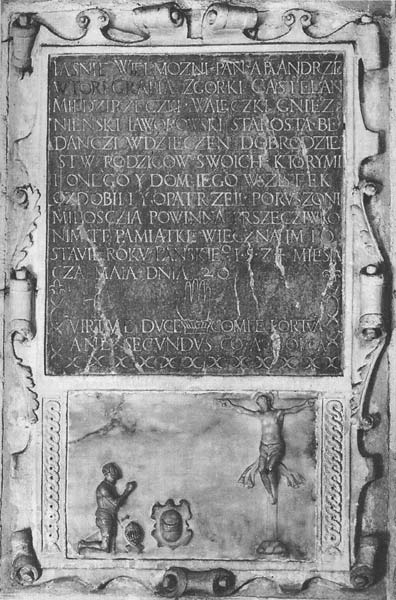 IASNIE WIELMOZNI PAN A PAN ANDRZE
Y TORI GRAFIA ZGORKI CASTELAN
MIEDZIRZECZKI WALECZKI GNIEZ
NIENSKI IAWOROWSKI STAROSTA BE
DANCZI WDZIECZEN DOBRODZIE
STW RODZICOW SWOICH KTORYMI
I ONEGO Y DOM IEGO WSZYTEK
OZDOBILI Y OPATRZELI PORUSZONI
MILOSCZIA POWINNA PRSZECZIWKO
NIM TE PAMIATKE WIECZNA IM PO
STAVIE ROKU PANSKIE 1574 MIESIA
CZA MAIA DNIA 20
VIRTUTE DUCE COMITE FORTU